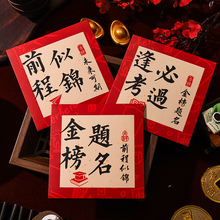 前程似錦
未來可期
逢考必過
金榜題名
金榜題名
前程似錦